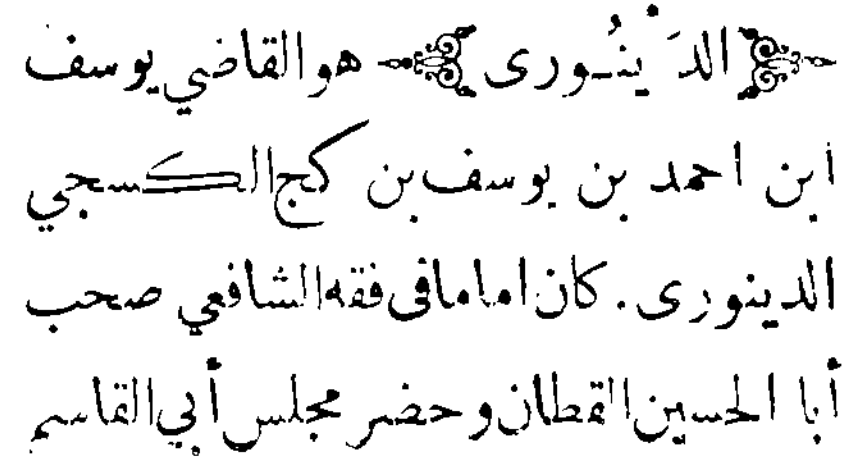 ﴿ الدَّينُورى ﴾ هو القاضي يوسف
ابن احمد بن يوسف بن كج الكسجي
الدينورى . كان اماما فى فقه الشافعي صحب
أبا الحسين القطان وحضر مجلس أبي القاسم